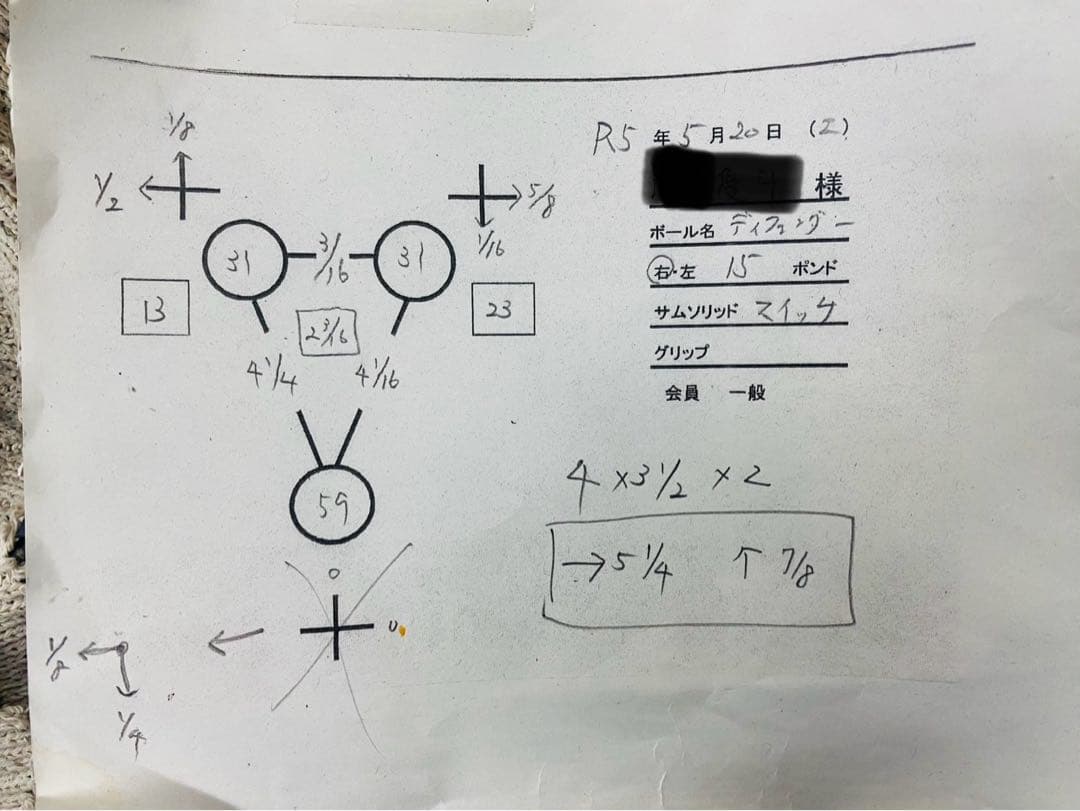 R5年5月20日(I)
様
ボール名 ディフェンダー
右・左 15 ポンド
サムソリッド スイッチ
グリップ
会員 一般
1/8
1/2
5/8
1/16
31 3/16 31
13 2 3/16 23
4 1/4 4 1/16
59
0
0
1/8
1/4
4 × 3 1/2 × 2
→ 5 1/4 ↑ 7/8